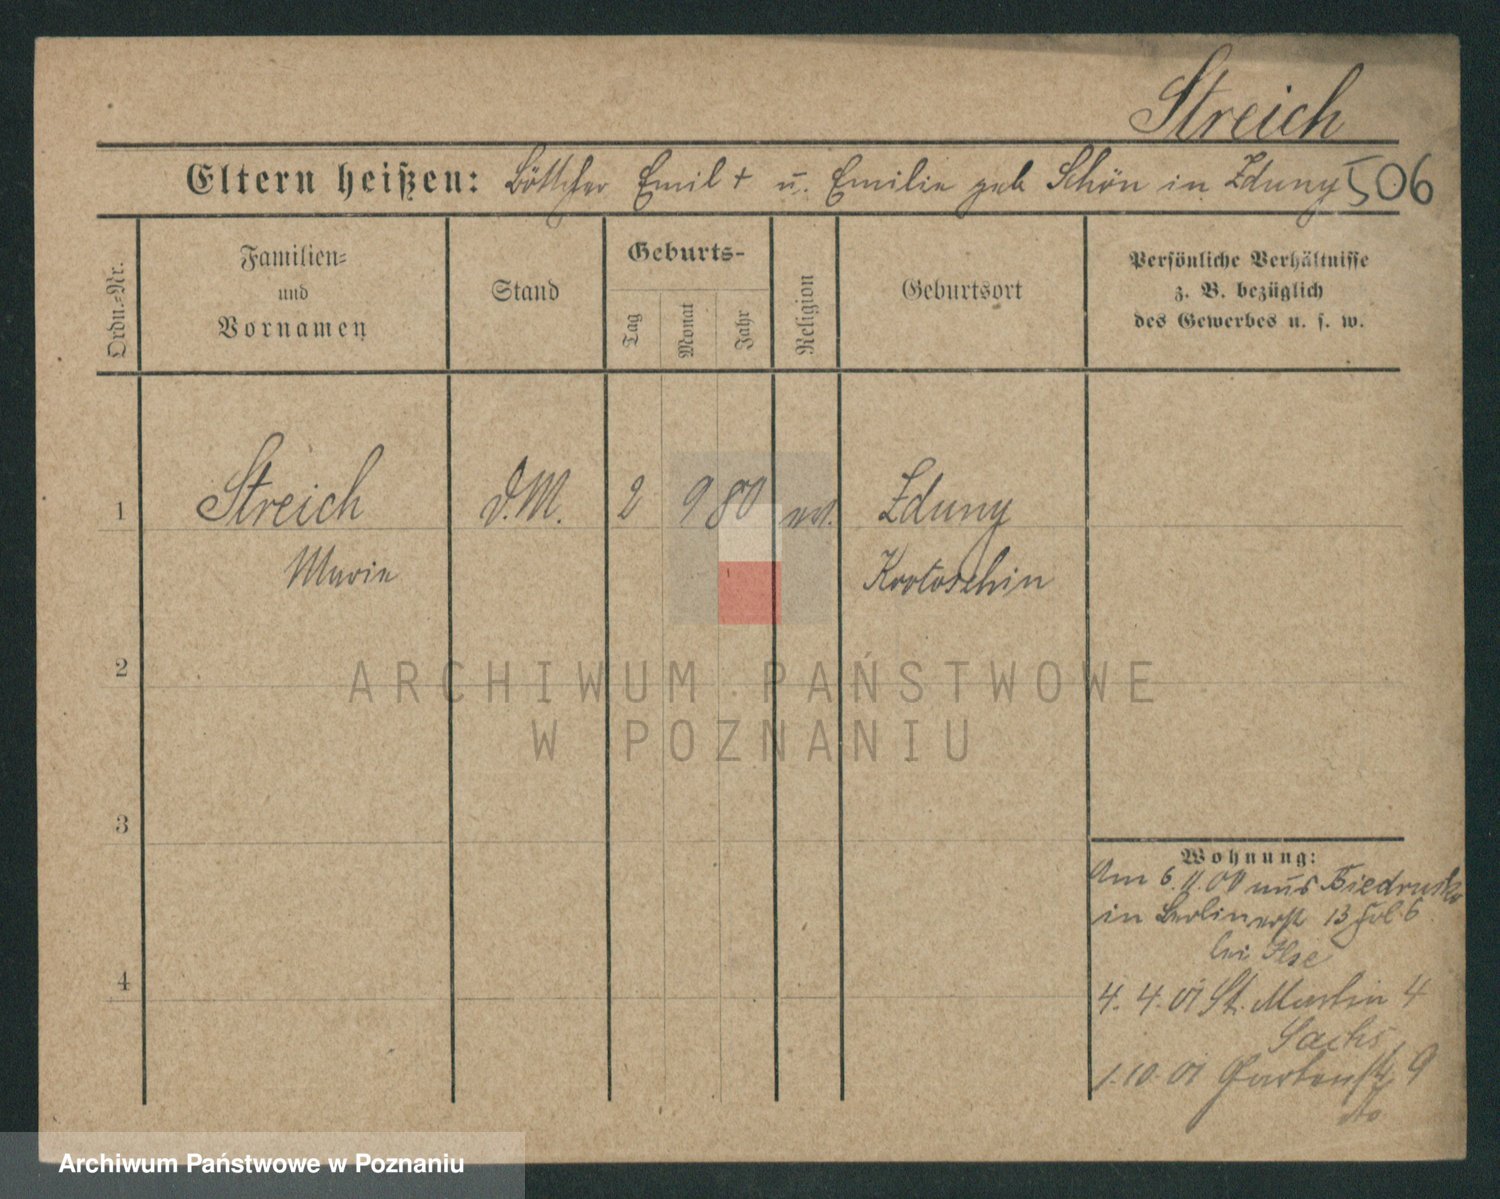 Streich
Eltern heißen: Böttcher Emil + u. Emilie geb Schön in Zduny 506
Ordn.-Nr.
Familien-
und
Vornamen
Stand
Geburts-
Tag
Monat
Jahr
Religion
Geburtsort
Persönliche Verhältnisse
z. B. bezüglich
des Gewerbes u. s. w.
1 Streich D.M. 2 9 80 ev. Zduny
Marie Krotoschin
2
3
4
Wohnung:
Am 6.11.00 aus Biedrusko
in Berlinerstr 13 Hol 6
bei Ilse
4. 4. 01 St. Martin 4
Sachs
1. 10. 01 Gartenstr 9
dto
ARCHIWUM PAŃSTWOWE
W POZNANIU
Archiwum Państwowe w Poznaniu